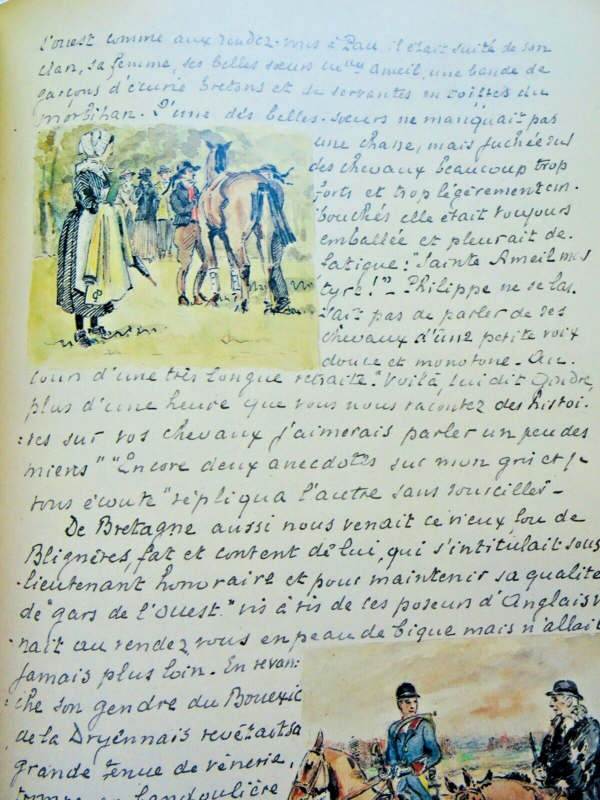 l'ouest comme aux rendez-vous à Pau il était suite de son
clan, sa femme, ses belles sœurs Ameil, une bande de
garçons d'écurie bretons et se servantes en coiffes du
morbihan. L'une des belles-sœurs ne manquait pas
une chasse, mais juchée sur
des chevaux beaucoup trop
forts et trop légèrement em-
bouchés elle était toujours
emballée et pleurait de
fatigue: "Sainte Ameil mar
tyre!" - Philippe ne se las-
sait pas de parler de ses
chevaux d'une petite voix
douce et monotone - Au
cours d'une très longue retraite: "Voilà, lui dit Gondre,
plus d'une heure que vous nous racontez des histoi-
res sur vos chevaux j'aimerais parler un peu des
miens" "Encore deux anecdotes sur mon gris et je
vous écoute" répliqua l'autre sans sourciller -
De Bretagne aussi nous venait ce vieux fou de
Blignères, fat et content de lui, qui s'intitulait sous
lieutenant honoraire et pour maintenir sa qualité
de "gars de l'ouest" vis à vis de ces poseurs d'Anglais v
nait au rendez vous en peau de bique mais n'allait
jamais plus loin. En revan-
che son gendre du Bouexic
de la Dryennais revêtait sa
grande tenue de vènerie,
trompe en bandoulière